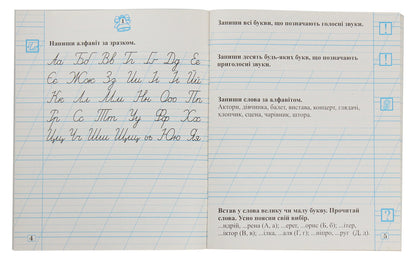 Напиши алфавіт за зразком.
Аа Бб Вв Гг Ґґ Дд Ее
Єє Жж Зз Ии Іі Її Йй
Кк Лл Мм Нн Оо Пп
Рр Сс Тт Уу Фф Хх
Цц Чч Шш Щщ ь Юю Яя
4
Запиши всі букви, що позначають голосні звуки.
Запиши десять будь-яких букв, що позначають
приголосні звуки.
Запиши слова за алфавітом.
Актори, дівчинка, балет, вистава, концерт, глядачі,
хлопчик, сцена, чарівник, штора.
Встав у слова велику чи малу букву. Прочитай
слова. Усно поясни свій вибір.
...ндрій, ...рена (А, а); ...ерег, ...орис (Б, б); ...ітер,
...іктор (В, в); ...ілка, ...аля (Г, г); ...ніпро, ...руг (Д, д).
5